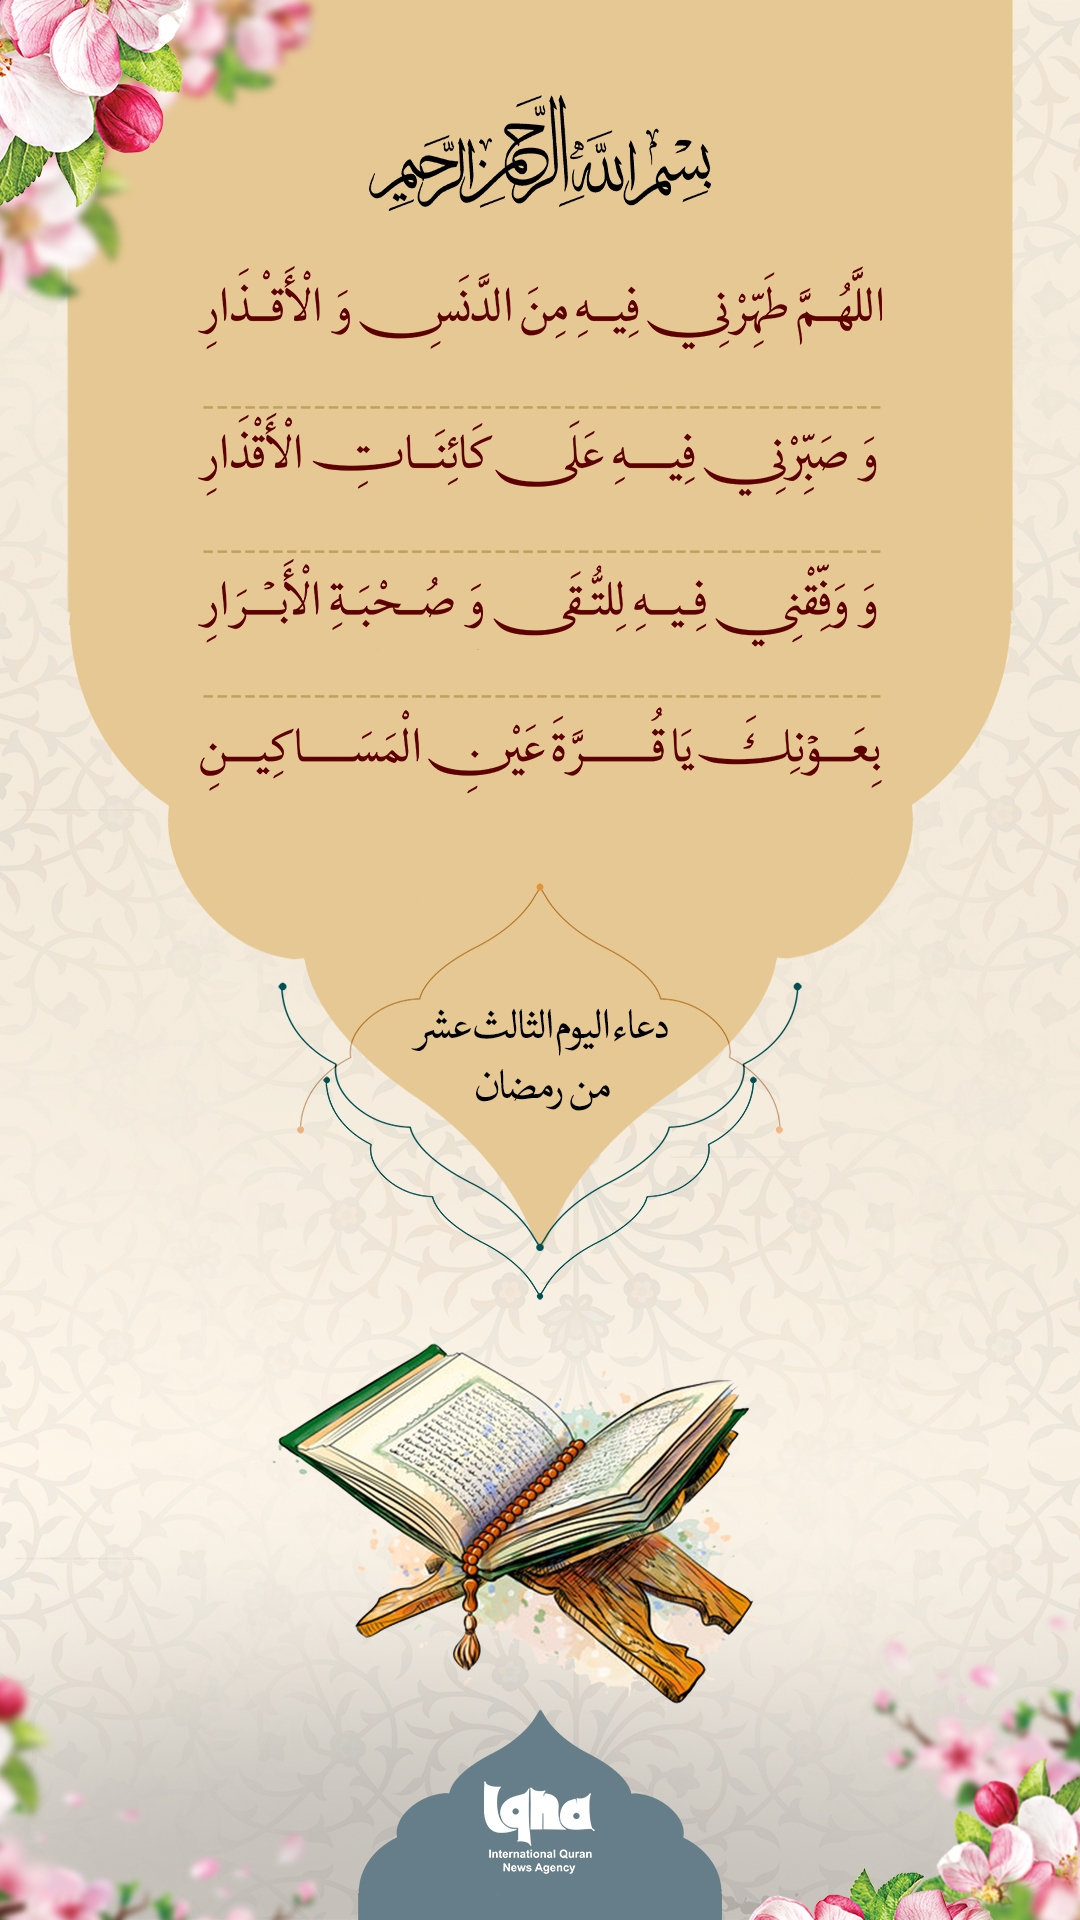 بِسْمِ اللَّهِ الرَّحْمَٰنِ الرَّحِيمِ
اللَّهُمَّ طَهِّرْنِي فِيهِ مِنَ الدَّنَسِ وَ الْأَقْذَارِ
وَ صَبِّرْنِي فِيهِ عَلَى كَائِنَاتِ الْأَقْذَارِ
وَ وَفِّقْنِي فِيهِ لِلتُّقَى وَ صُحْبَةِ الْأَبْرَارِ
بِعَوْنِكَ يَا قُرَّةَ عَيْنِ الْمَسَاكِينِ
دعاء اليوم الثالث عشر
من رمضان
Iqna
International Quran
News Agency